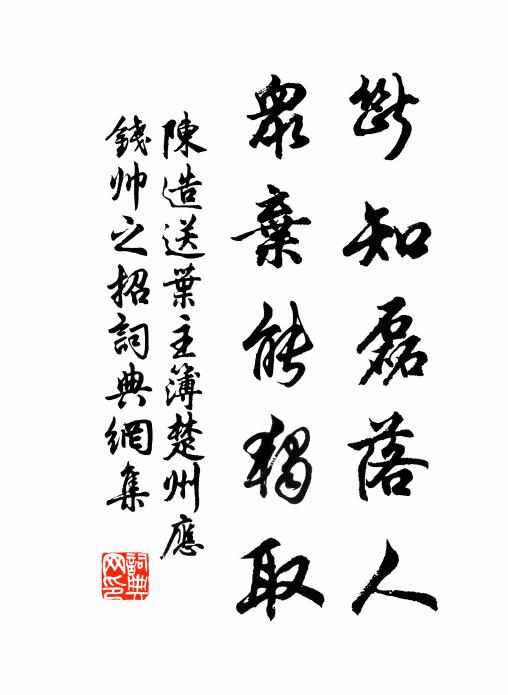 斷知磊落人
眾棄能獨取
陳造送葉主簿楚州應
錢帅之招詞典網集
詞典
网印